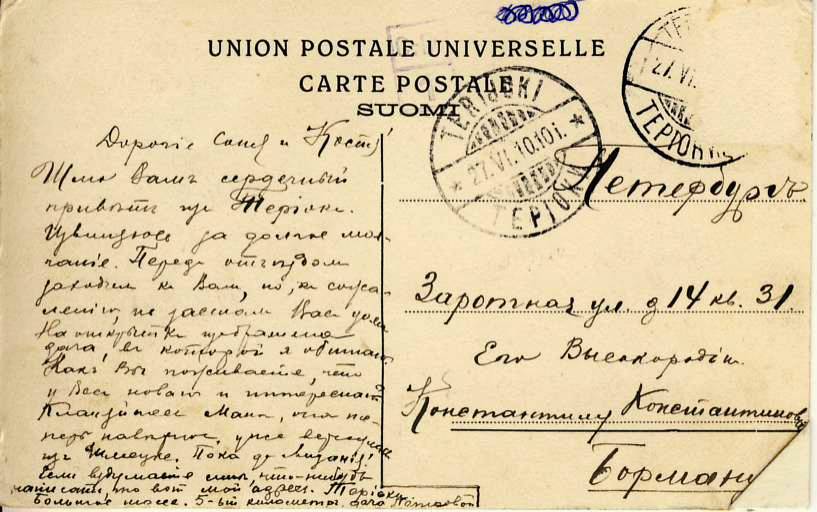 UNION POSTALE UNIVERSELLE
CARTE POSTALE
SUOMI
TERIJOKI
27.VI.10.10 i.
ТЕРІОКИ
27.VI.
ТЕРІОКИ
Дорогіе Соня и Костя!
Шлю Вамъ сердечный
привѣтъ изъ Теріокъ.
Извиняюсь за долгое мол-
чаніе. Передъ отъѣздомъ
заходилъ къ Вамъ, но, къ сожа-
лѣнію, не засталъ Васъ дома
На открыткѣ изображена
дача, въ которой я обитаю.
Какъ Вы поживаете, что
у Васъ новаго и интереснаго
Кланяйтесь Мани, она те-
перь навѣрное, уже вернулась
изъ Пока до свиданія!
Если вздумаете мнѣ что-нибудь
написать, то вотъ мой адресъ. Теріоки
Большое шоссе. 5-ый километръ. дача
Петербургъ
Заротная ул. д 14 кв. 31.
Его Высокородію
Константину Константиновичу
Борману